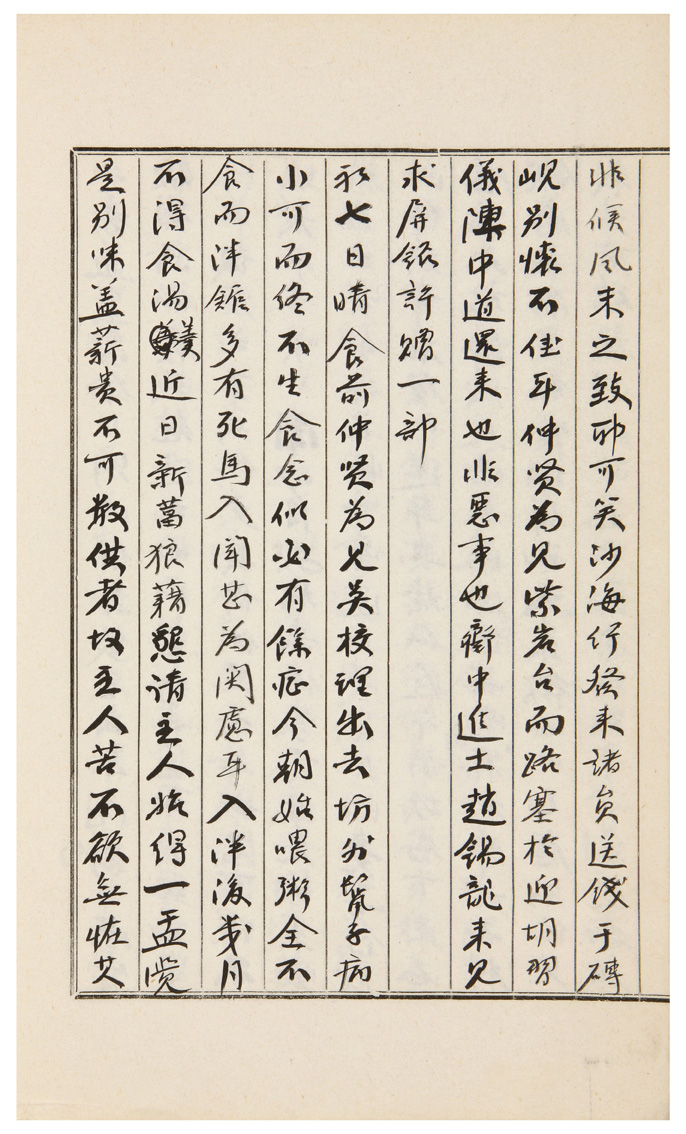 非候風來之致耶可笑沙海行發來諸員送餞于磚
峴別懷不佳耳仲賢為見紫岩台而路塞於迎胡習
儀陣中道還來也非惡事也齋中進士趙錫龍來見
求屛銘許贈一部
初七日晴食前仲賢為見吳校理出去坊外贊子病
小可而終不生食念似必有餘症今朝始喂粥全不
食而泮館多有死馬入聞甚為関慮耳入泮後幾月
不得食湯近日新蒿狼藉懇請主人始得一盂覺
是別味盖薪貴不可數供者故主人苦不欲無怪其